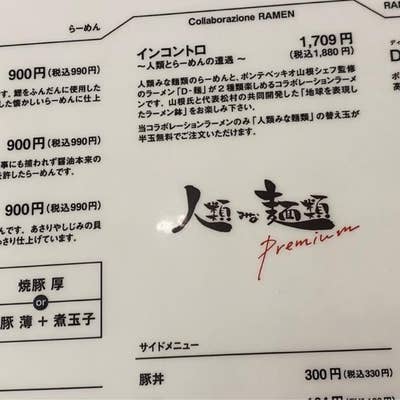 らーめん
900円(税込990円)
鰹をふんだんに使用した
した懐かしいらーめんに仕上
900円(税込990円)
事にも捕われず醤油本来の
を許したらーめんです。
900円(税込990円)
、あさりやしじみの貝
っさり仕上げています。
焼豚 厚
or
豚 薄 + 煮玉子
Collaborazione RAMEN
インコントロ 1,709円
〜人類とらーめんの遭遇〜 (税込1,880円)
人類みな麺類のらーめんと、ポンテベッキオ山根シェフ監修
のラーメン「D・麺」が2種類楽しめるコラボレーションラーメ
ンです。山根氏と代表松村の共同開発した「地球を表現し
たラーメン鉢」をお楽しみ下さい。
当コラボレーションラーメンのみ「人類みな麺類」の替え玉が
半玉無料でご注文いただけます。
人類みな麺類
Premium
サイドメニュー
豚丼 300円(税込330円)
RA
D